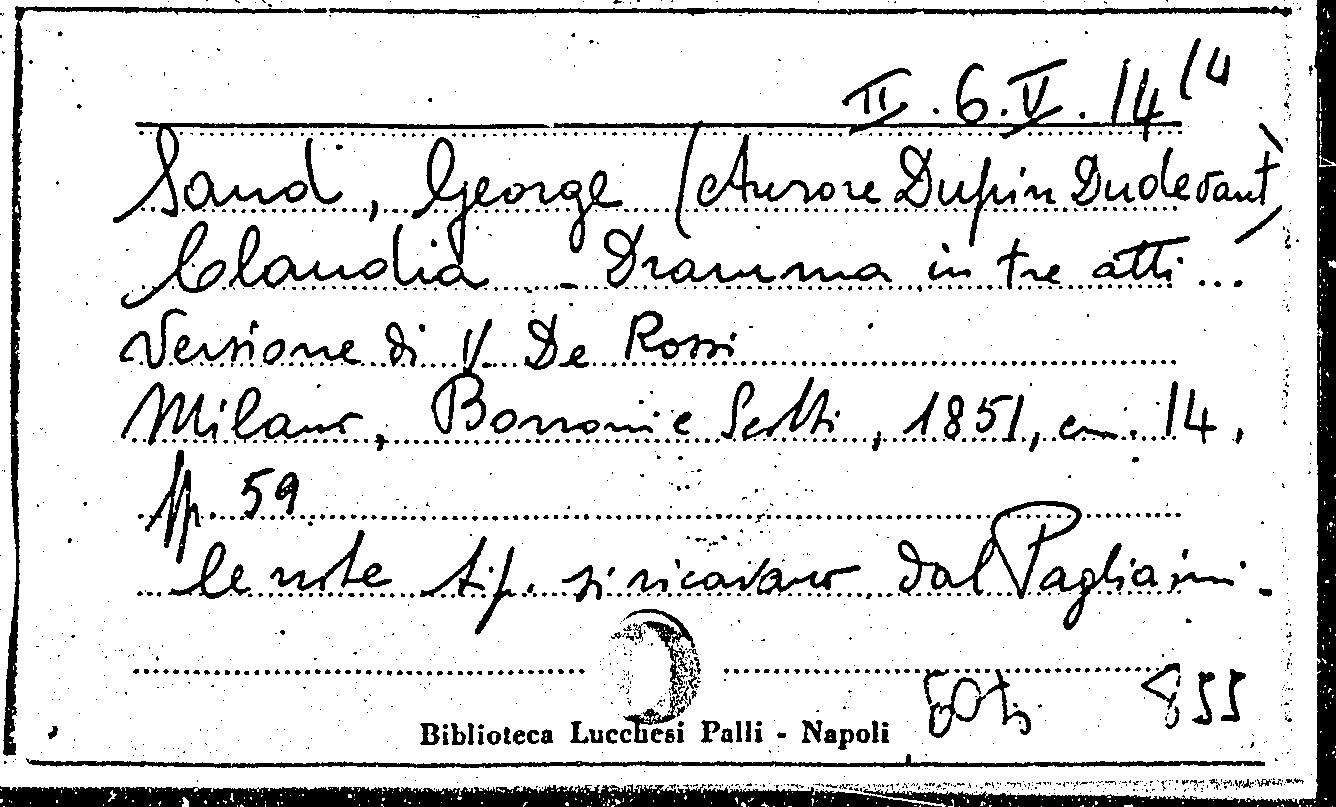 II.6.V.14 14
Sand, George (Aurore Dupin Dudevant)
Claudia - Dramma in tre atti...
Versione di V. De Rossi
Milano, Borroni e Scotti, 1851, cm. 14,
pp. 59
le note tip. si ricavano dal Pagliaini.
Biblioteca Lucchesi Palli - Napoli